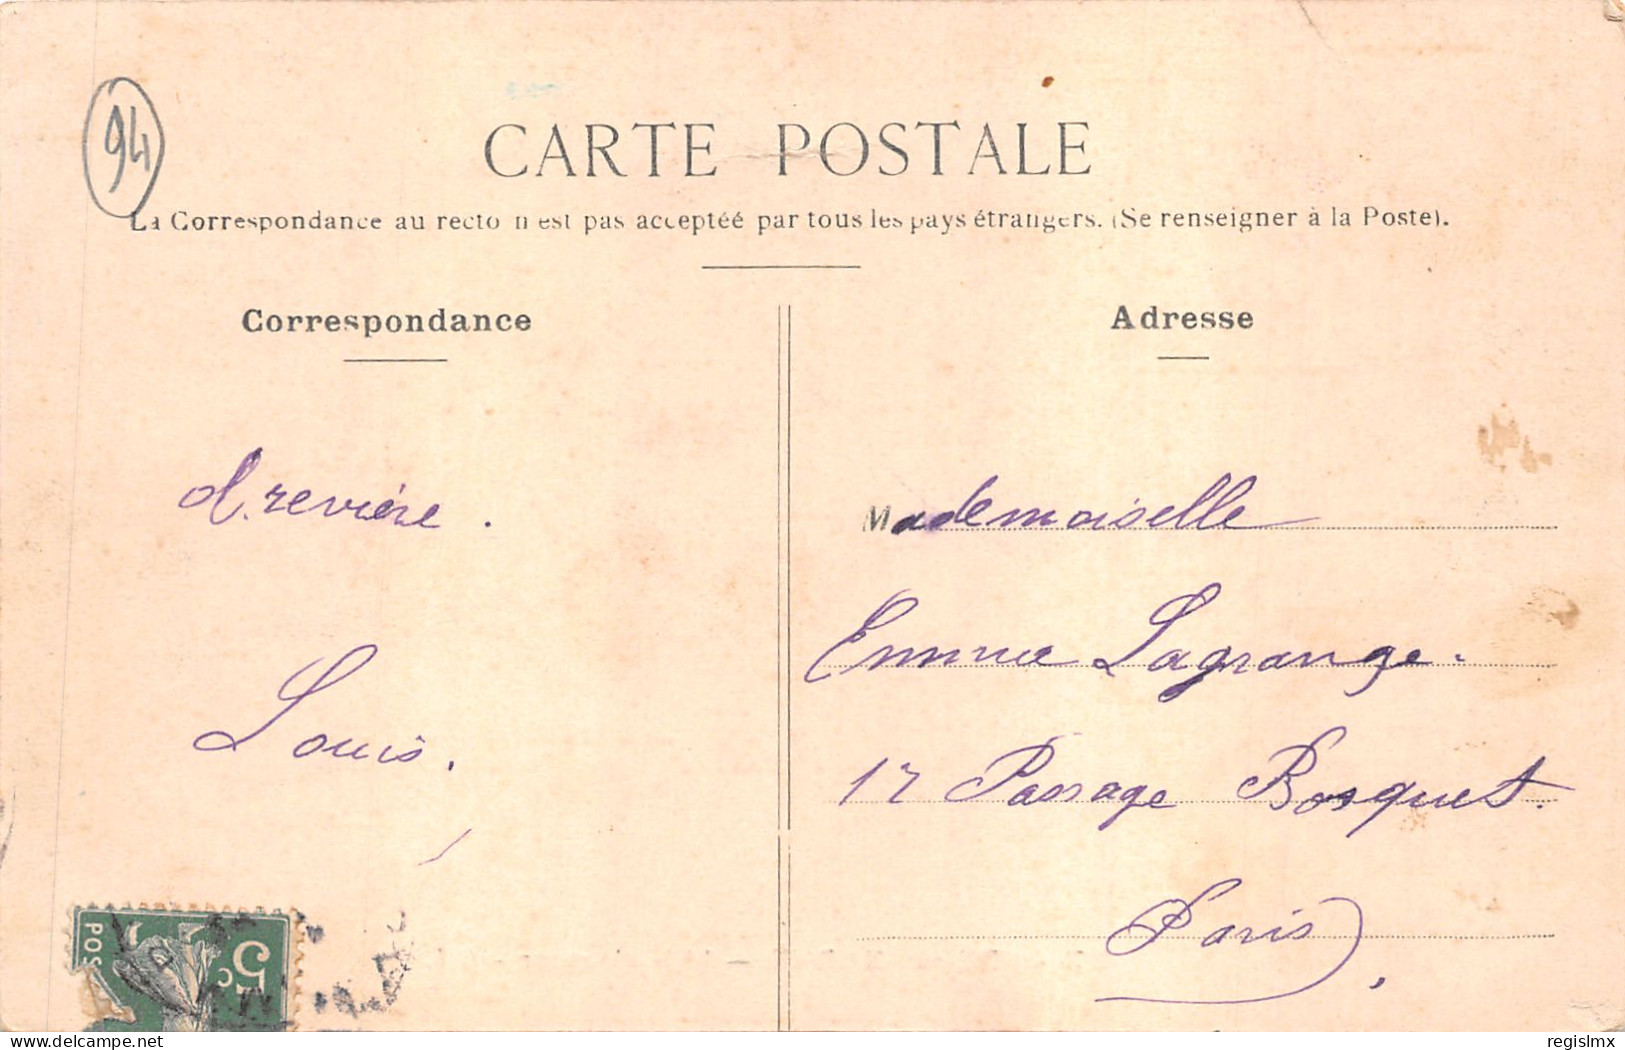 94
CARTE POSTALE
La Correspondance au recto n'est pas acceptée par tous les pays étrangers. (Se renseigner à la Poste).
Correspondance
Louis.
5c
POS
Adresse
Mademoiselle
Emma Lagrange.
17 Passage Bosquet.
Paris
delcampe.net
regislmx